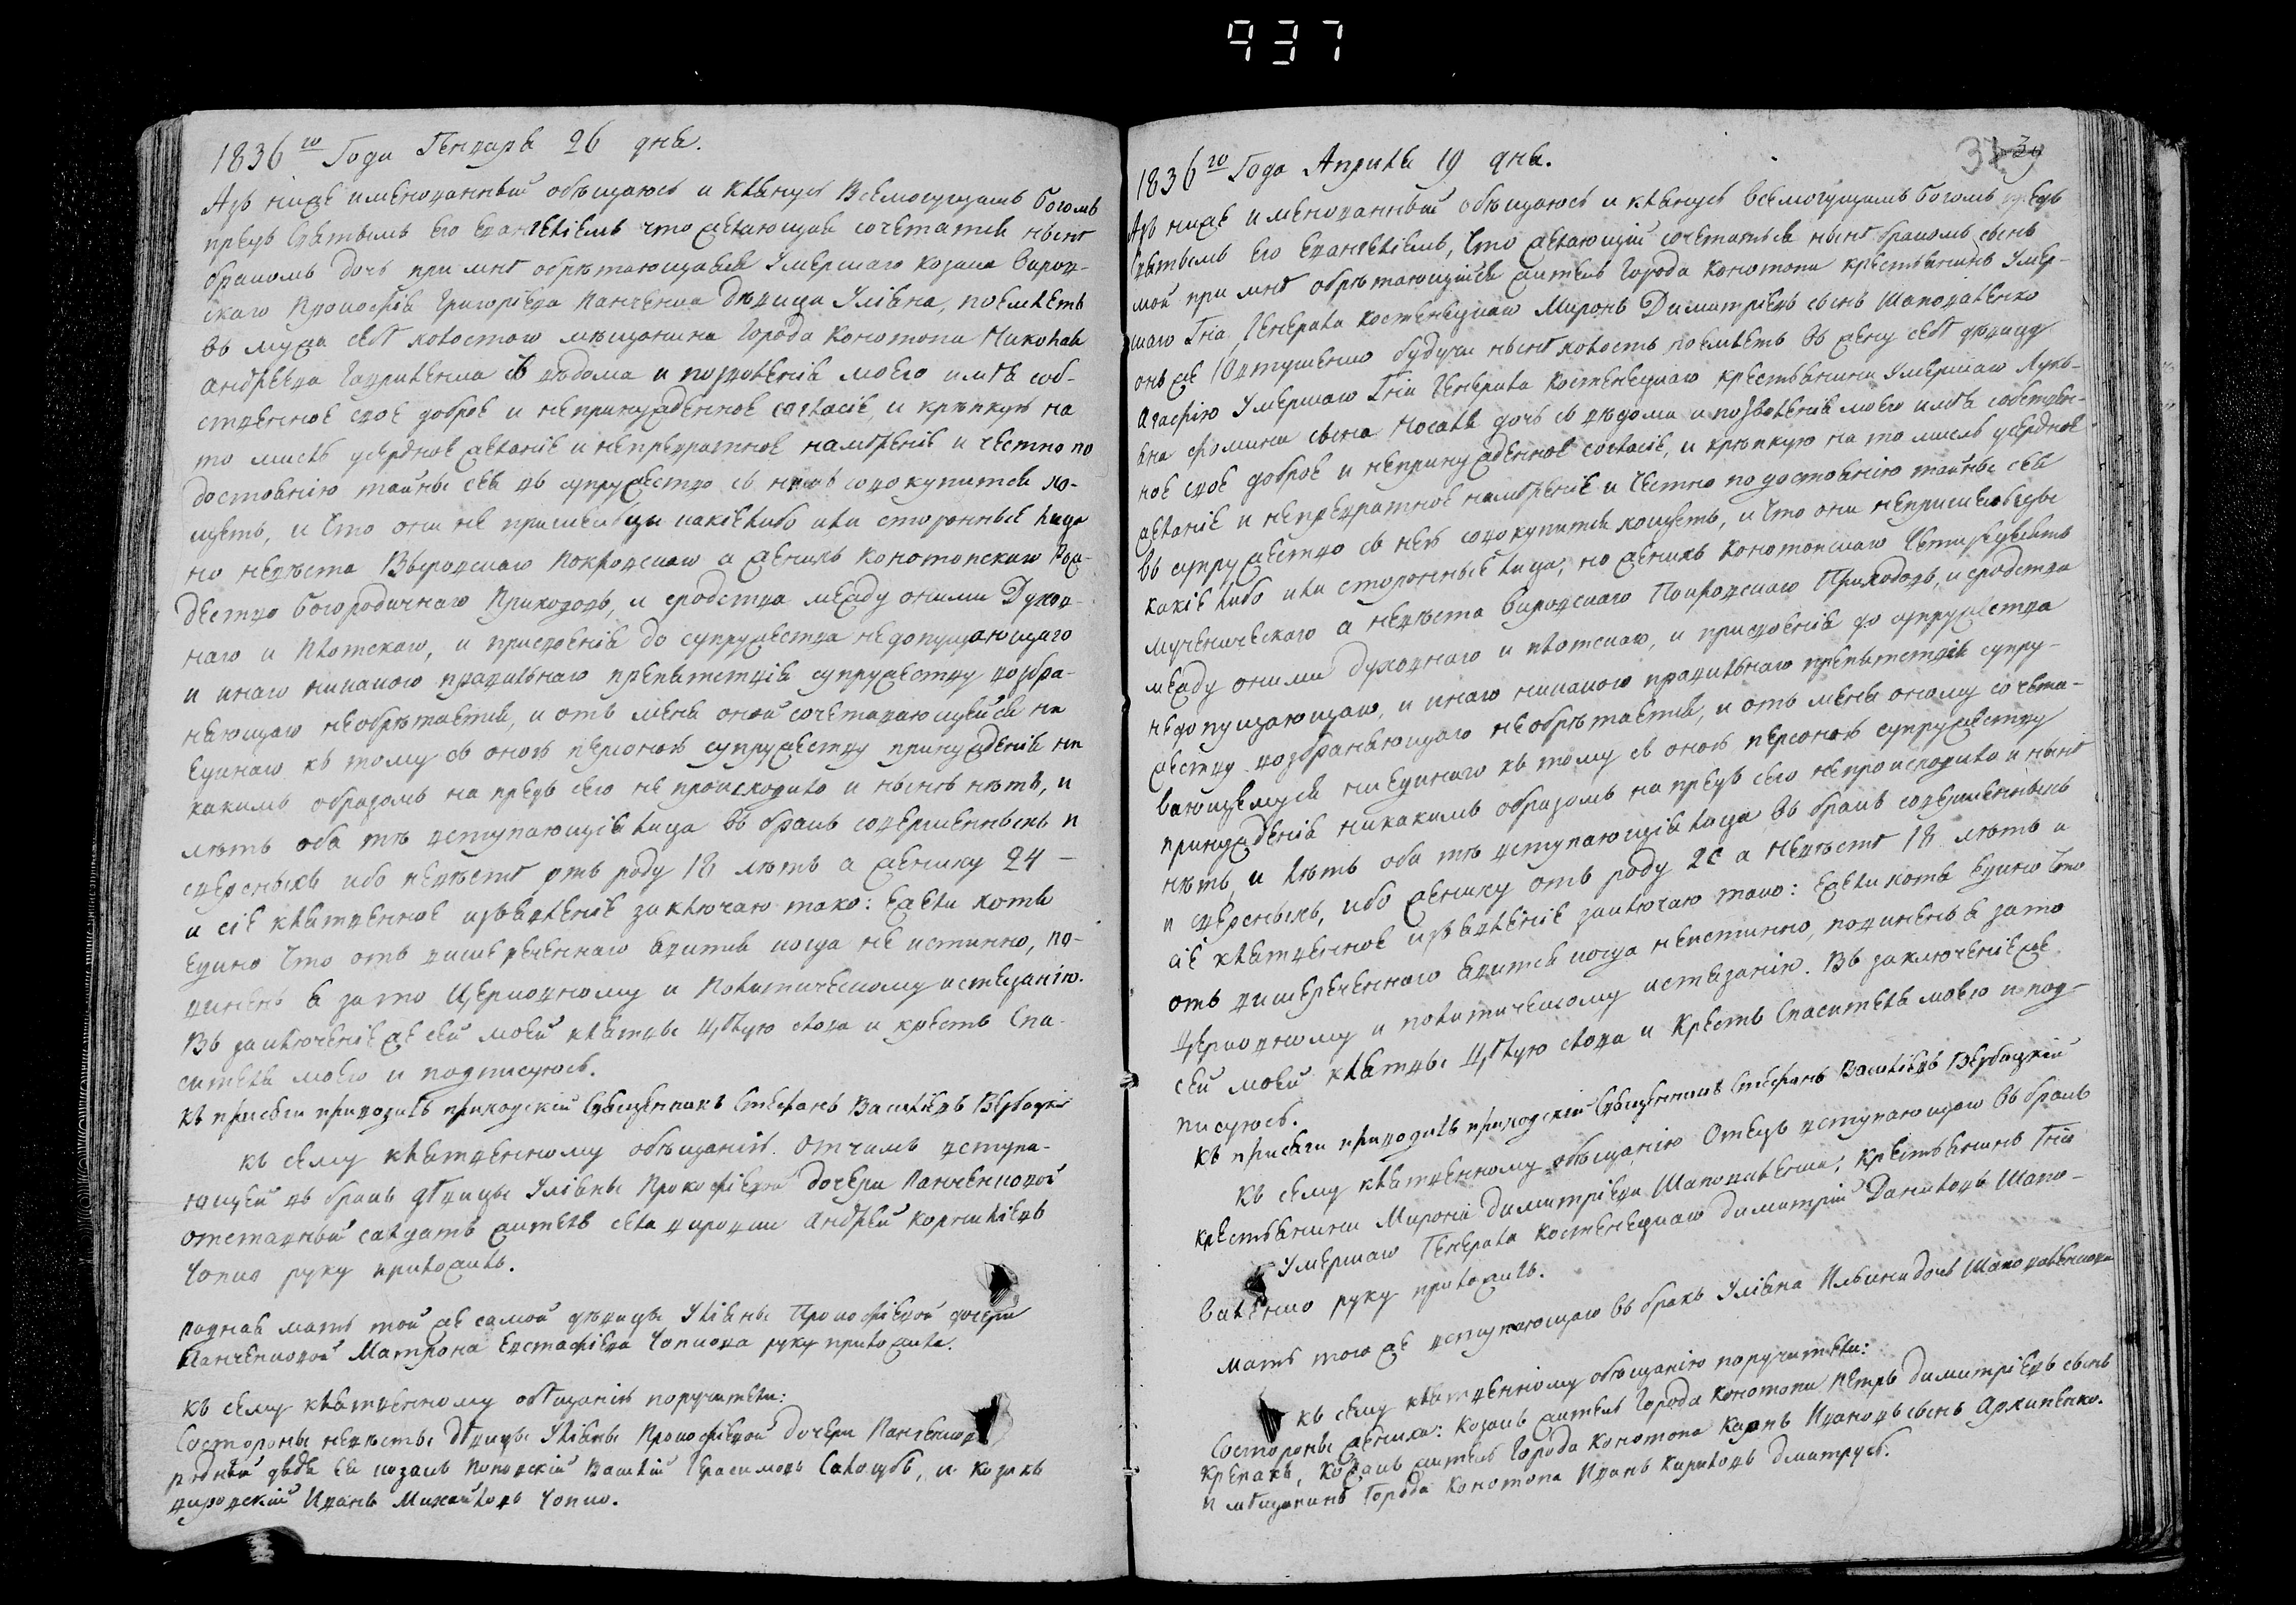 937
1836го Года Генваря 26 дня.
Азъ ниже именованный обѣщаюсь и клянусь Всемогущимъ Богомъ
предъ Святымъ Его Евангеліемъ что желающая сочетатися нынѣ
бракомъ дочь при мнѣ обрѣтающаяся умершаго козака вировскаго
скаго Прокофія Григоріева Панченка дѣвица Уліяна, поемлетъ
въ мужа себѣ холостаго мѣщанина города Конотопа Николая
Андреева Гавриленка съ вѣдома и позволенія моего имѣя соб-
ственное свое доброе и непринужденное согласіе, и крѣпкую на
то мисль усердное желаніе и непревратное намѣреніе и честно по
достоянію тайны сея въ супружество съ нимъ совокупитися хо-
щетъ, и что они не пришельцы какіелибо или сторонные лица
но невѣста Вировскаго Покровскаго а женихъ Конотопскаго Рож-
дество Богородичнаго Приходовъ, и сродства между оними Духов-
наго и Плотскаго, и присвоенія до супружества недопущающаго
и инаго никакого правильнаго препятствія супружеству возбра-
няющаго необрѣтается, и отъ мене оной сочетавающейся ни
единаго къ тому съ оною персоною супружеству принужденія ни
какимъ образомъ на предъ сего не происходило и нынѣ нѣтъ, и
лѣтъ оба тѣ вступающія лица въ бракъ совершенныхъ и
сверсныхъ ибо невѣстѣ отъ роду 18 лѣтъ а жениху 24 —
и сіе клятвенное изъявленіе заключаю тако: Ежели хотя
едино что отъ вишереченнаго явится когда не истинно, по-
виненъ я зато Церковному и Политическому истязанію.
Въ заключеніе же сей моей клятвы цѣлую слова и крестъ Спа-
сителя моего и подписуюсь.
Къ присяги приводилъ приходскій Священникъ Стефанъ Василіевъ Вербицкій
Къ сему клятвенному обѣщанію отчимъ вступа-
ющей въ бракъ дѣвицы Уліяны Прокофіевой дочери Панченковой
отставный салдатъ житель села вировки Андрей Корнилієвъ
Чопко руку приложилъ.
родная мать той же самой дѣвицы Уліяны Прокофіевой дочери
Панченковой Матрона Евстафіева Чопкова руку приложила.
Къ сему клятвенному обѣщанію поручители:
Состороны невѣсты дѣвицы Уліяны Прокофіевой дочери Панченковой
родный дядя ея козакъ Поповскій Василій Герасимовъ Сахоцубъ, и козакъ
вировскій Иванъ Михайловъ Чопко.
1836го Года Априля 19 дня.
Азъ ниже именованный обѣщаюсь и клянусь всемогущимъ Богомъ предъ
Святымъ Его Евангеліемъ, что желающій сочетаться нынѣ бракомъ сынъ
мой при мнѣ обрѣтающійся житель города Конотопа крестьянинъ умер-
шаго Гна Генерала Костенецкаго Миронъ Димитріевъ сынъ Шаповаленко
онъ же Ювтушенко будучи нынѣ холостъ поемлетъ въ жену себѣ дѣвицу
Агафію умершаго Гна Генерала Костенецкаго крестьянина умершаго Лукь-
яна Фомина сына Носаля дочь съ вѣдома и позволенія моего имѣя собствен-
ное свое доброе и непринужденное согласіе, и крѣпкую на то мисль усердное
желаніе и непревратное намѣреніе и честно по достоянію тайны сея
въ супружество съ нею совокупитися хощетъ, и что они непришельцы
какіелибо или сторонные лица, но женихъ Конотопскаго Четиредесять
мученическаго а невѣста вировскаго Покровскаго Приходовъ, и сродства
между оними духовнаго и плотскаго, и присвоенія до супружества
недопущающаго, и инаго никакого правильнаго препятствія супру-
жеству возбраняющаго необрѣтается, и отъ мене оному сочета-
вающемуся ниединаго къ тому съ оною персоною супружеству
принужденія никакимъ образомъ на предъ сего непроисходило и нынѣ
нѣтъ, и лѣтъ оба тѣ вступающія лица въ бракъ совершенныхъ
и сверсныхъ, ибо жениху отъ роду а невѣстѣ 18 лѣтъ и
сіе клятвенное изъявленіе заключаю тако: Ежели хотя едино что
отъ вишереченнаго явится когда неистинно, повиненъ я зато
Церковному и политическому истязанію. Въ заключеніеже
сей моей клятвы Цѣлую слова и Крестъ Спасителя моего и под-
писуюсь.
Къ присяги приводилъ приходскій Священникъ Стефанъ Василіевъ Вербицкій
Къ сему клятвенному обѣщанію Отецъ вступающаго въ бракъ
крестьянина Мирона Димитріева Шаповаленка, крестьянинъ Гна
Умершаго Генерала Костенецкаго Димитрій Даниловъ Шапо-
валенко руку приложилъ.
Мать того же вступающаго въ бракъ Уліяна Ильина дочь Шаповаленкова
Къ сему клятвенному обѣщанію поручители:
Состороны жениха: козакъ житель Города Конотопа Петръ Димитріевъ сынъ
Крепакъ, козакъ житель Города Конотопа Ивановъ сынъ Архипенко.
и мѣщанинъ Города Конотопа Иванъ Кириловъ Дмитрусь.